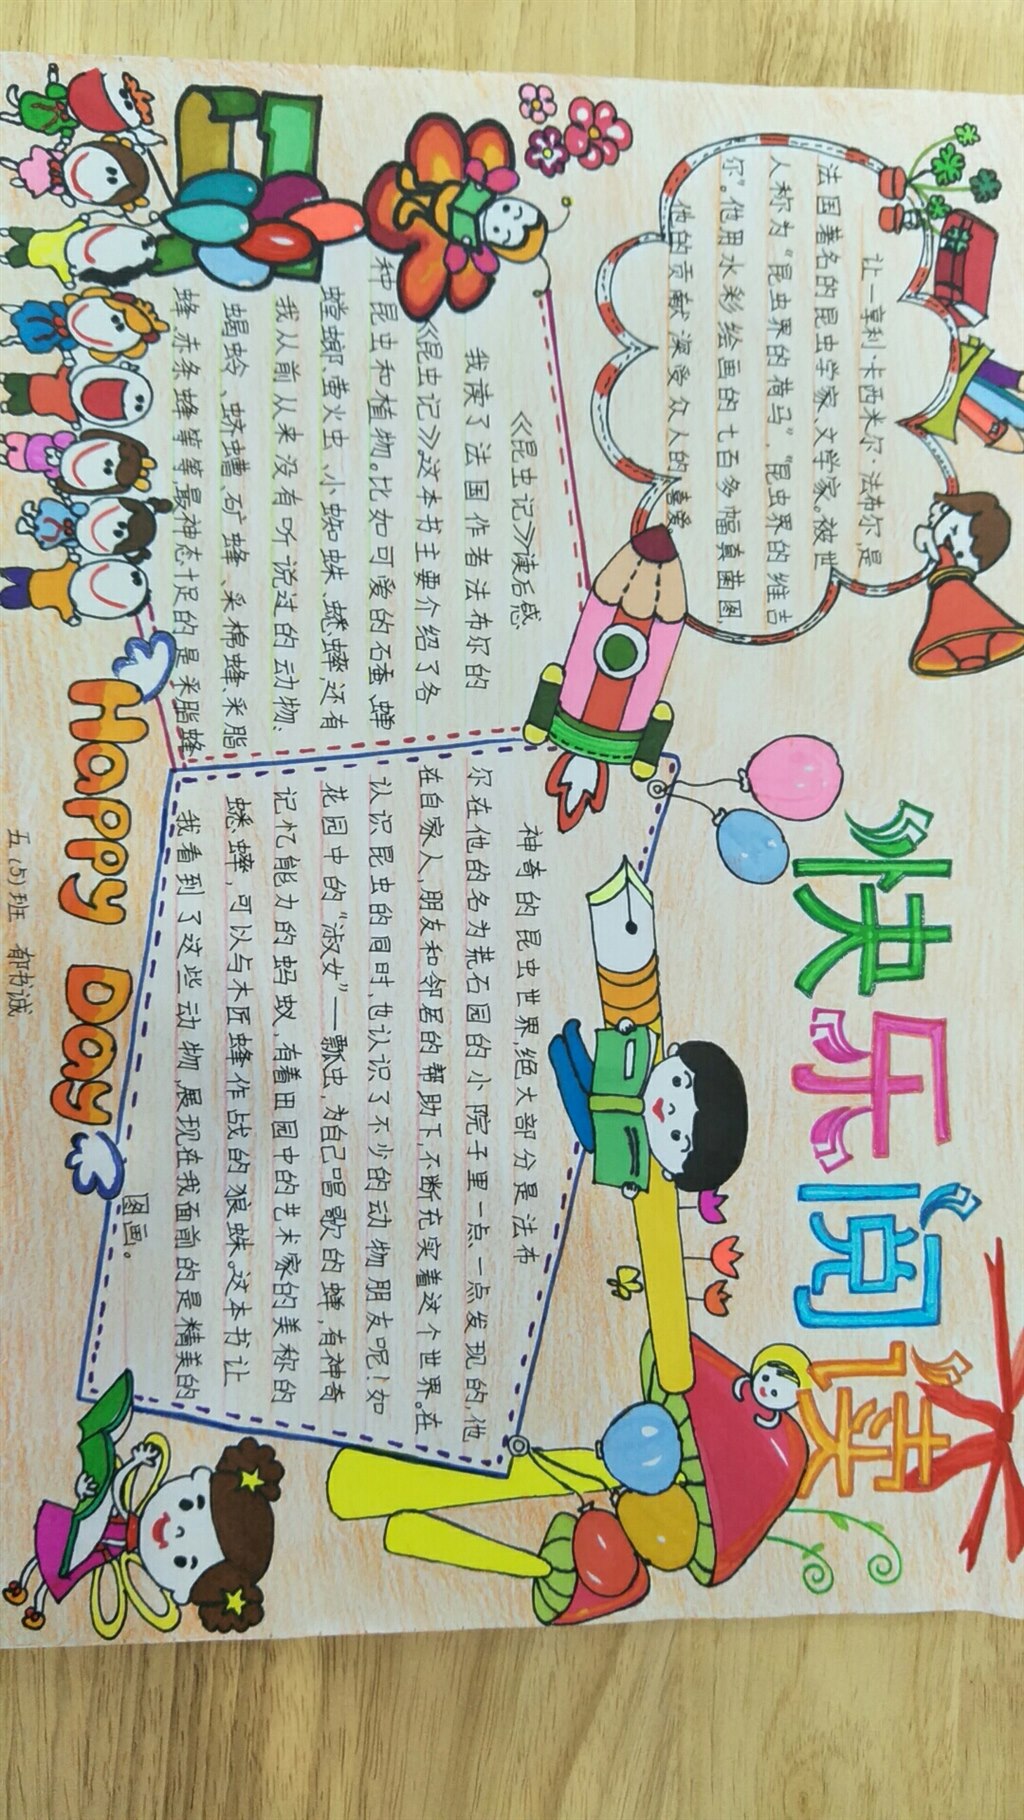 快乐阅读
让一亨利·卡西米尔·法布尔是
法国著名的昆虫学家,文学家。被世
人称为“昆虫界的荷马”,“昆虫界的维吉
尔”。他用水彩绘画的七百多幅真菌图,
他的贡献深受众人的喜爱。
《昆虫记》读后感
我读了法国作者法布尔的
《昆虫记》这本书主要介绍了各
种昆虫和植物。比如可爱的石蚕、蝉
螳螂、萤火虫、小蜘蛛、蟋蟀,还有
我从前从来没有听说过的动物:
蝎蛉、蛴螬、矿蜂、采棉蜂、采脂
蜂、赤条蜂等等,最神态十足的是采脂蜂
神奇的昆虫世界,绝大部分是法布
尔在他的名为荒石园的小院子里一点一点发现的,他
在自家人,朋友和邻居的帮助下,不断充实着这个世界。在
认识昆虫的同时,也认识了不少的动物朋友呢!如
花园中的“淑女”一瓢虫,为自己唱歌的蝉,有神奇
记忆能力的蚂蚁,有着田园中的艺术家的美称的
蟋蟀,可以与木匠蜂作战的狼蛛。这本书让
我看到了这些动物,展现在我面前的是精美的
图画。
Happy Day
五(5)班 郁书诚